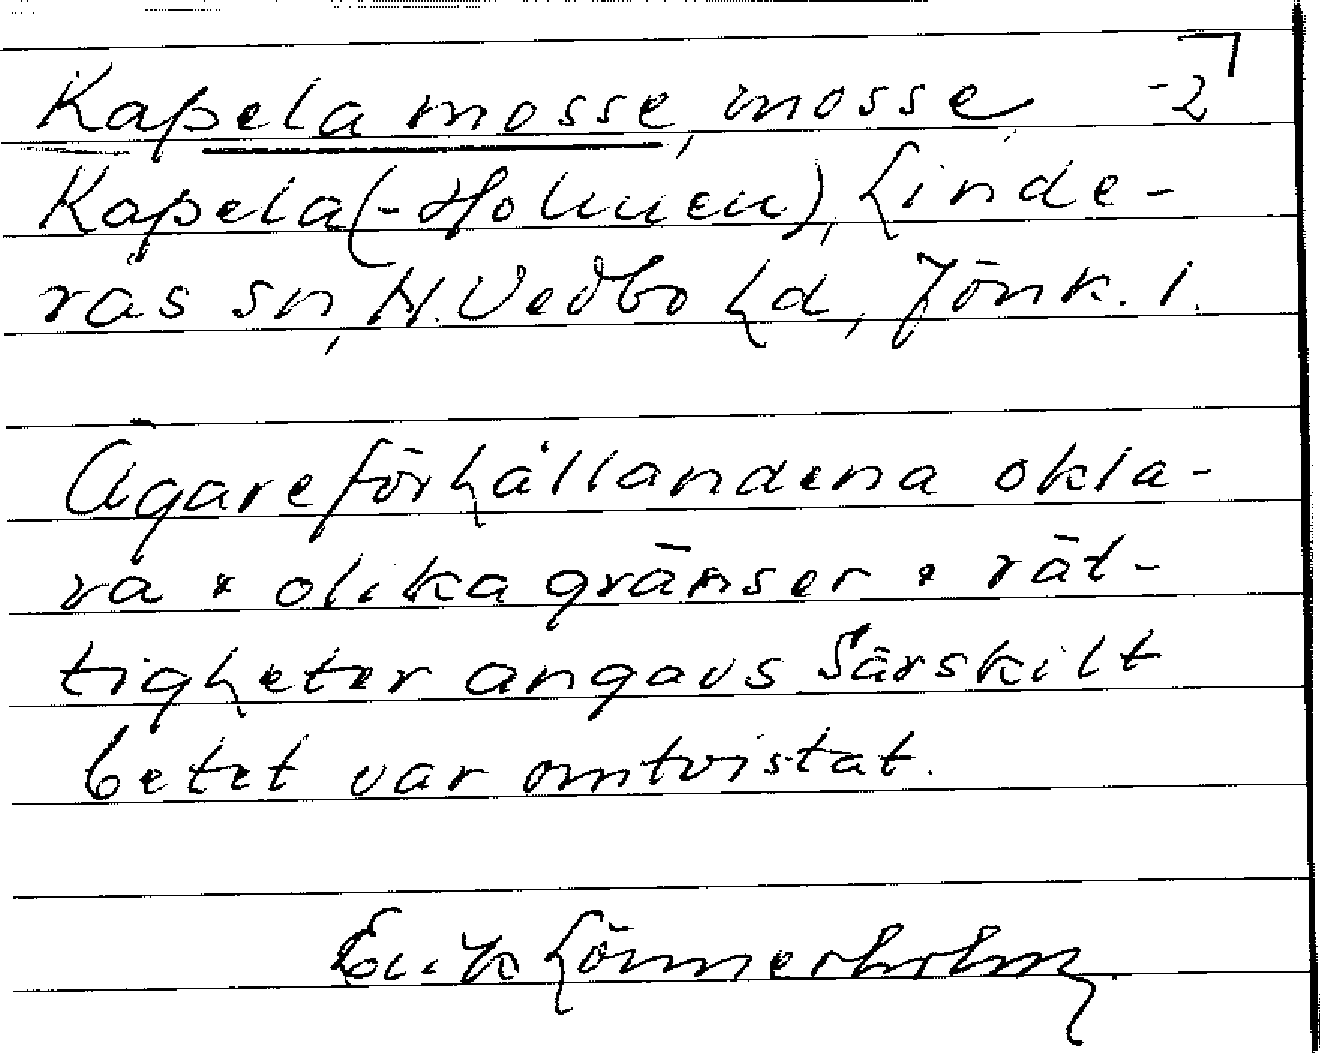 Kapela mosse, mosse, -2
Kapela(-Holmen), Linde-
rås sn, N. Vedbo hd, Jönk. l.
Ägareförhållandena okla-
ra & olika gränser & rät-
tigheter angavs Särskilt
betet var omtvistat.
Erik Lönnerholm